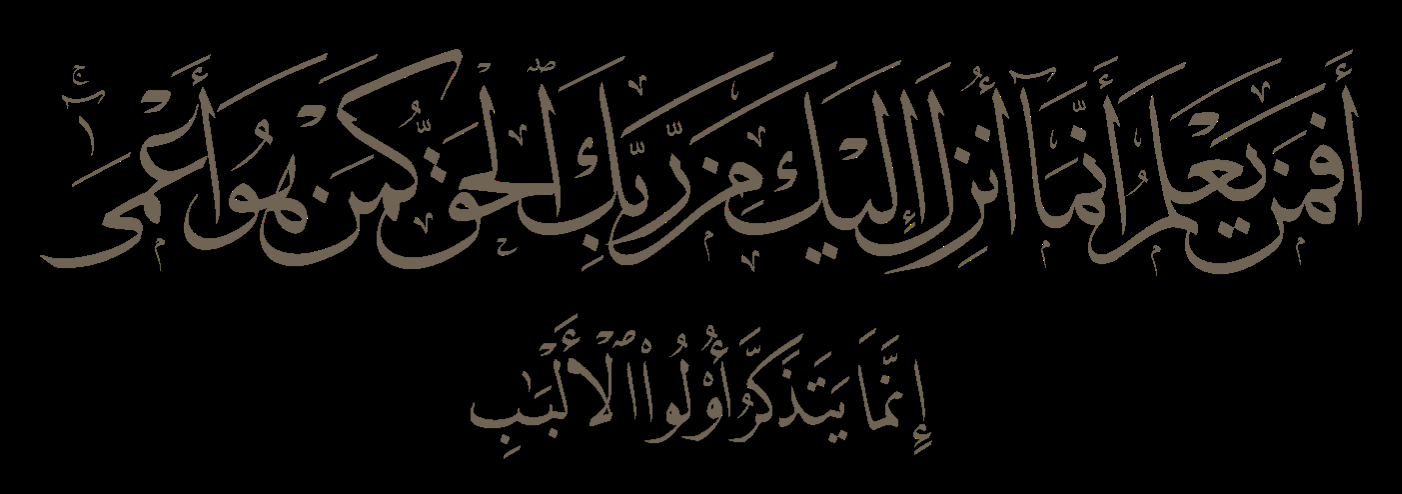 أَفَمَن يَعْلَمُ أَنَّمَآ أُنزِلَ إِلَيْكَ مِن رَّبِّكَ ٱلْحَقُّ كَمَنْ هُوَ أَعْمَىٰٓ ۚ
إِنَّمَا يَتَذَكَّرُ أُو۟لُوا۟ ٱلْأَلْبَـٰبِ